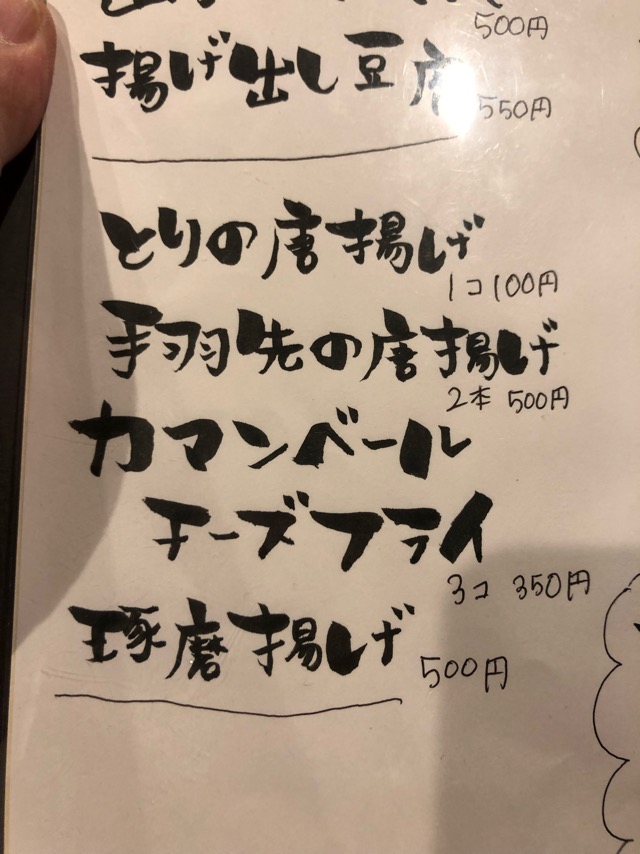 500円
揚げ出し豆腐
550円
とりの唐揚げ
1コ100円
手羽先の唐揚げ
2本 500円
カマンベール
チーズフライ
3コ 350円
琢磨揚げ
500円